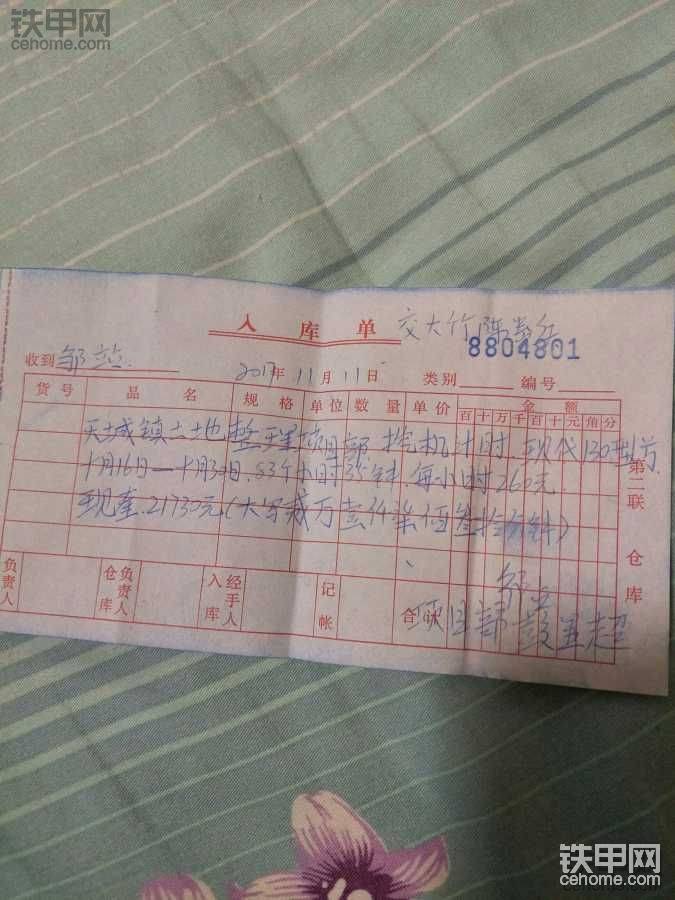 铁甲网
cehome.com
入库单 交大竹陈
8804801
收到 邹 2017年11月11日 类别 编号
货号 品名 规格 单位 数量 单价 金额
百十万千百十元角分
天城镇土地整理项目部.挖机计时.现代130型号.
十月16日—十月30日.83个小时35分钟.每小时260元.
现金.21730元(大写贰万壹仟柒佰叁拾
第二联 仓库
负责人 仓库负责人 入库经手人 记帐 合计
邹
项目部
铁甲网
cehome.com